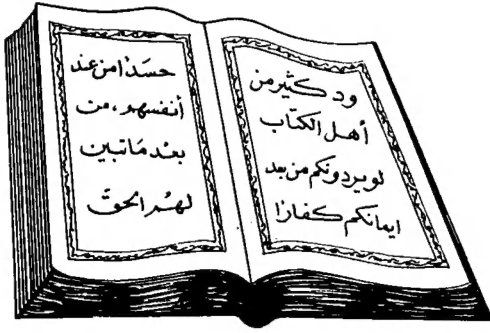 ود كثير من
أهل الكتاب
لو يردونكم من بعد
ايمانكم كفارًا
حسَدًا من عند
أنفسهم، من
بعد مَا تبين
لهُم الحقَ